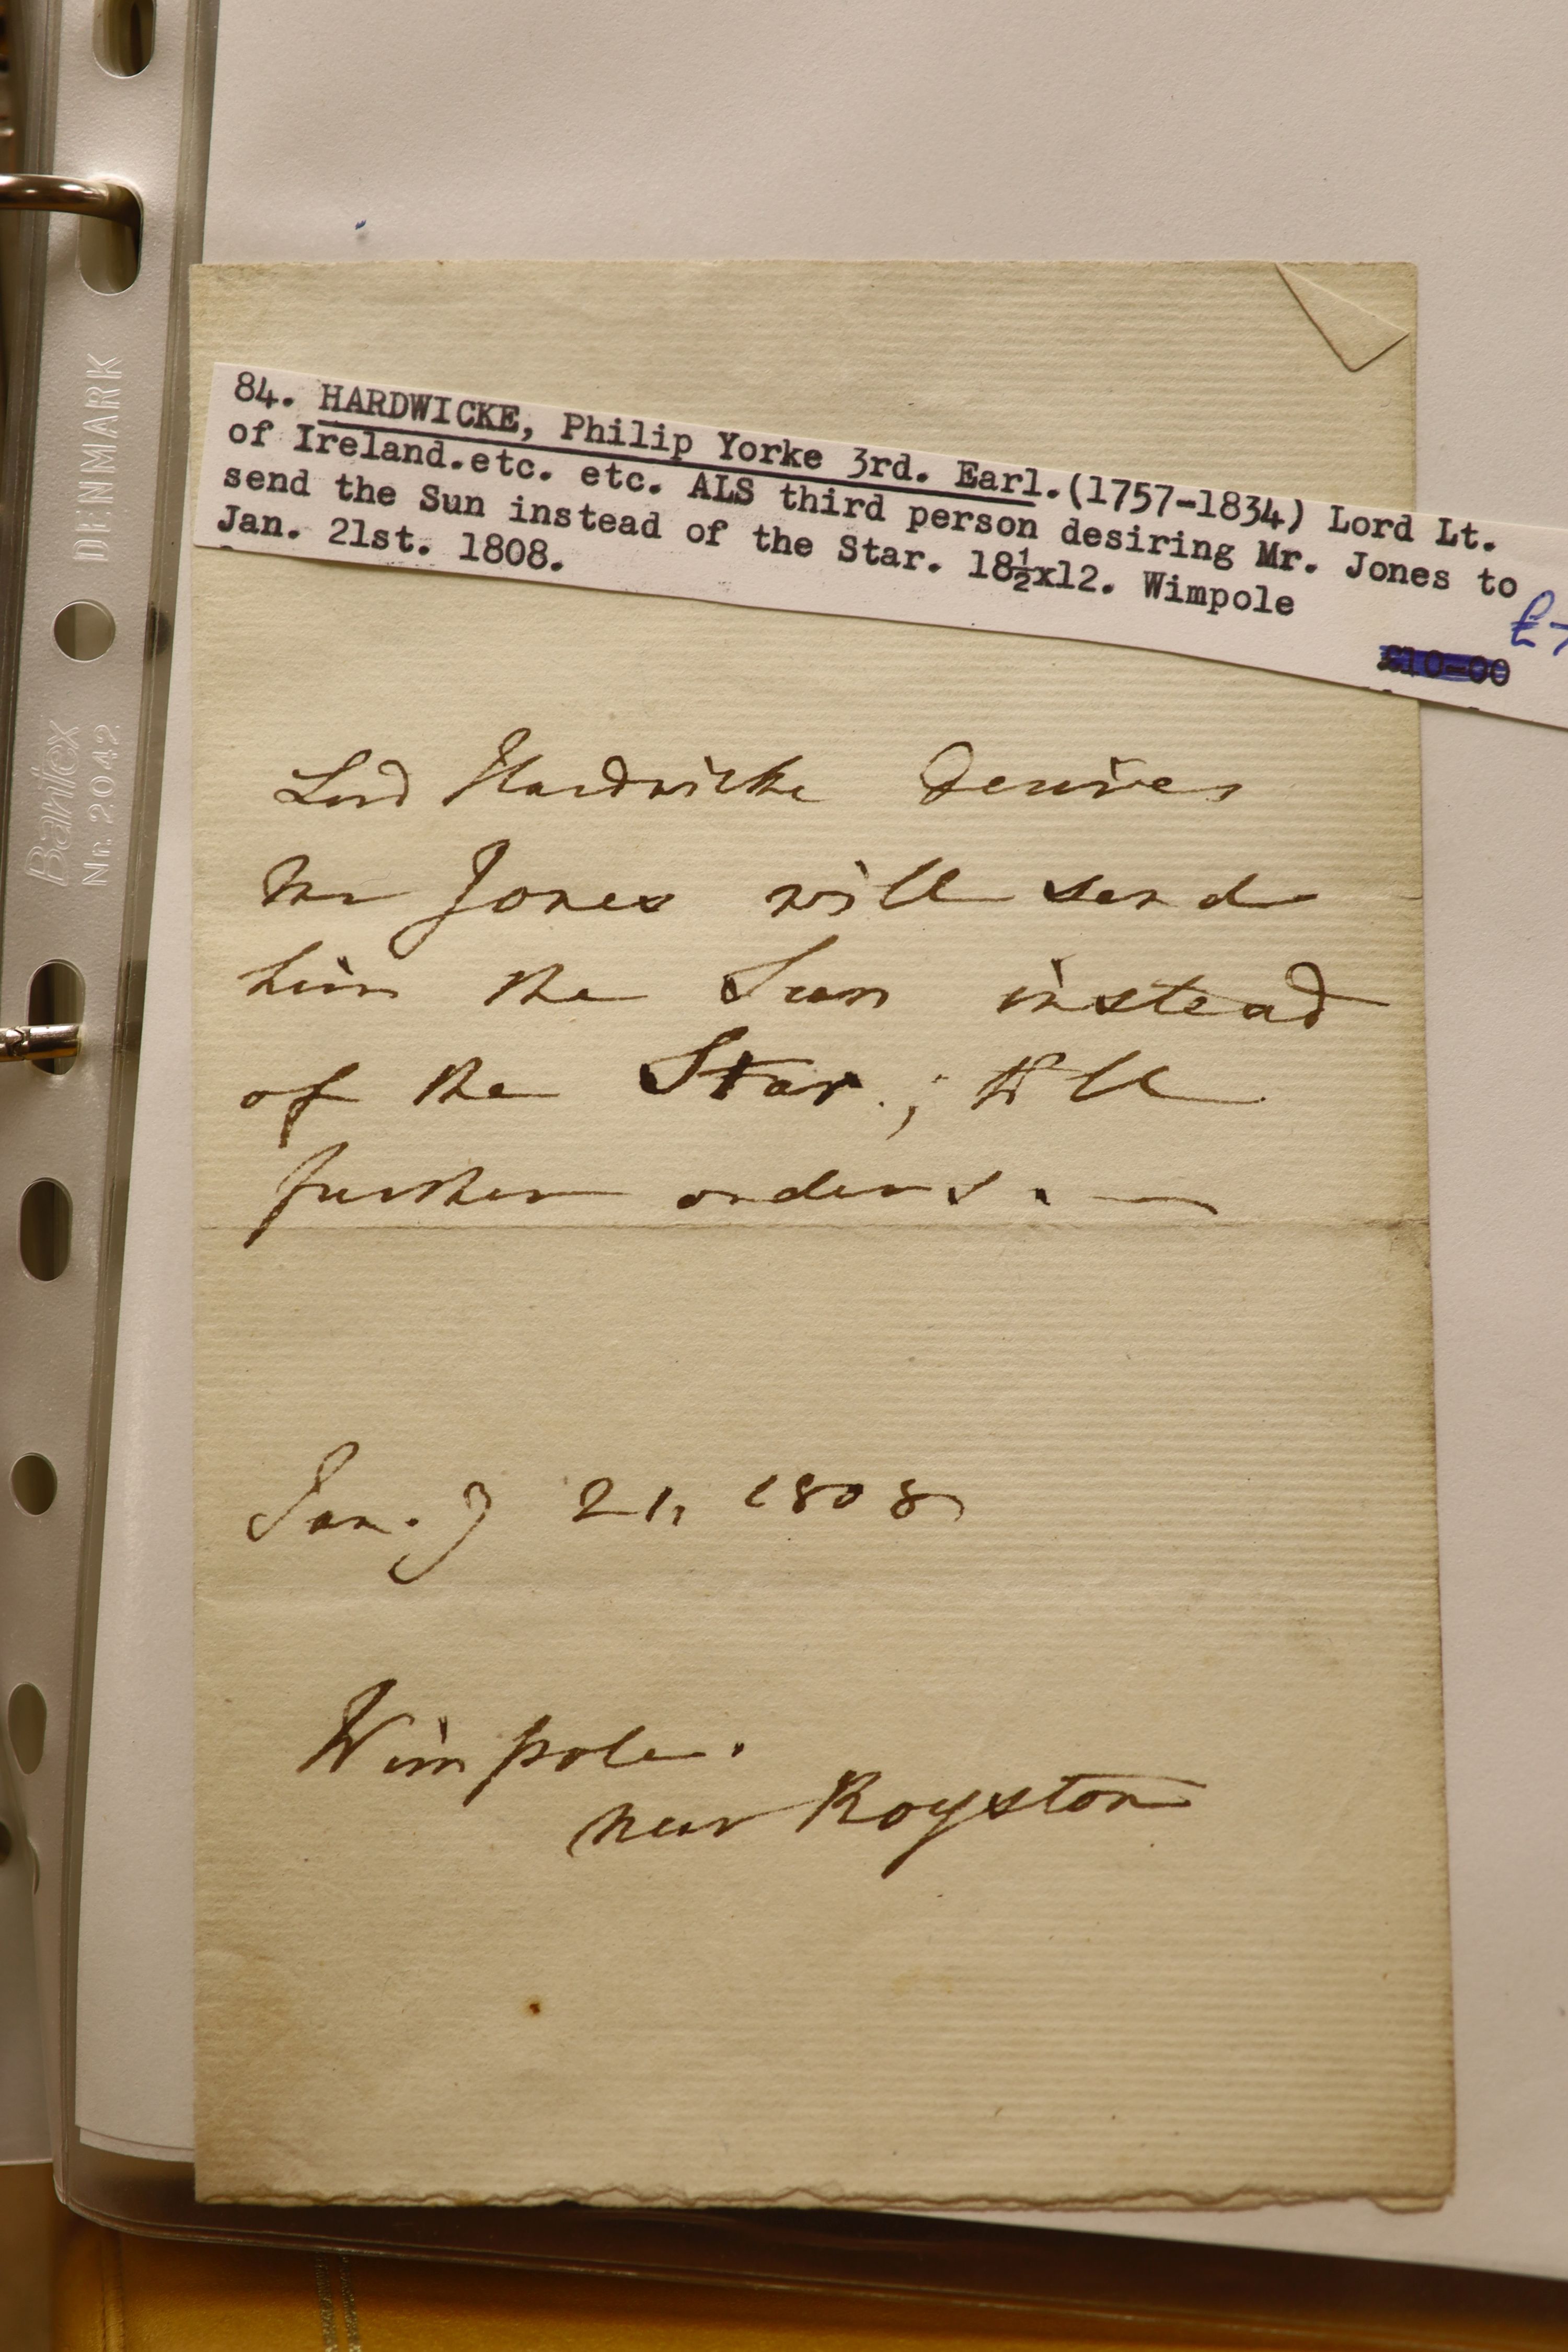 DENMARK
Bantex
Nr. 2042
84. HARDWICKE, Philip Yorke 3rd. Earl.(1757-1834) Lord Lt.
of Ireland.etc. etc. ALS third person desiring Mr. Jones to
send the Sun instead of the Star. 18½x12. Wimpole
Jan. 21st. 1808.
£10-00
Lord Hardwicke desires
Mr Jones will send
him the Sun instead
of the Star.; till
further orders. —
Jan.y 21, 1808
Wimpole.
near Royston